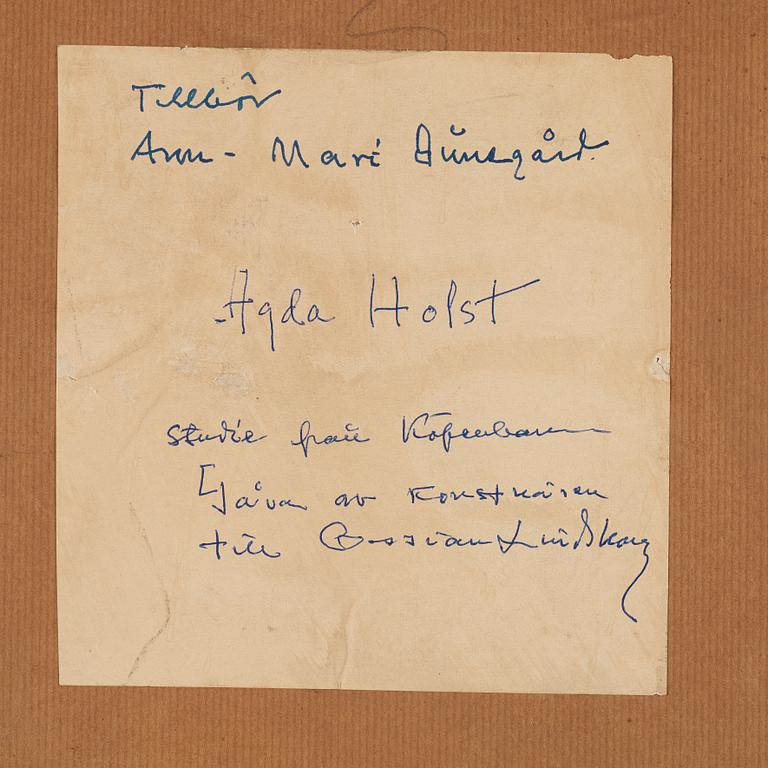 Tillhör
Ann-Mari
Agda Holst
studie från Köpenhamn
Gåva av konstnären
till Ossian Lindskoug